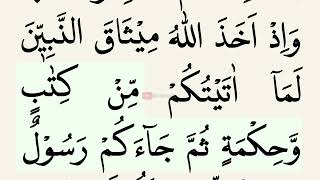 وَاِذْ اَخَذَ اللّٰهُ مِيْثَاقَ النَّبِيّٖنَ
لَمَاۤ اٰتَيْتُكُمْ مِّنْ كِتٰبٍ
وَّحِكْمَةٍ ثُمَّ جَآءَكُمْ رَسُوْلٌ